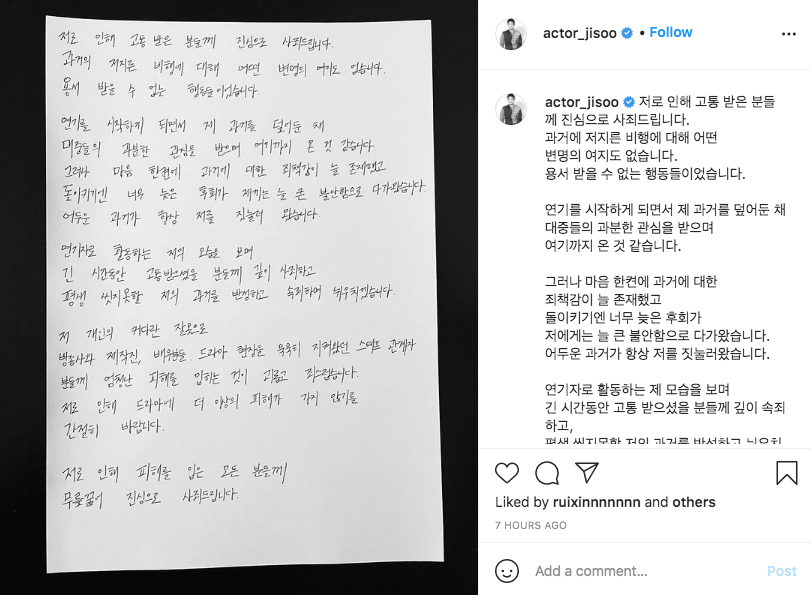 저로 인해 고통 받은 분들께 진심으로 사죄드립니다.
과거의 저지른 비행에 대해 어떤 변명의 여지도 없습니다.
용서 받을 수 없는 행동들이었습니다.
연기를 시작하게 되면서 제 과거를 덮어둔 채
대중들의 과분한 관심을 받으며 여기까지 온 것 같습니다.
그러나 마음 한켠에 과거에 대한 죄책감이 늘 존재했고
돌이키기엔 너무 늦은 후회가 저에게는 늘 큰 불안함으로 다가왔습니다.
어두운 과거가 항상 저를 짓눌러 왔습니다.
연기자로 활동하는 저의 모습을 보며
긴 시간동안 고통받으셨을 분들께 깊이 사죄하고
평생 씻지못할 저의 과거를 반성하고 속죄하며 뉘우치겠습니다.
저 개인의 커다란 잘못으로
방송사와 제작진, 배우들, 드라마 현장을 묵묵히 지켜왔던 스태프 관계자
분들께 엄청난 피해를 입히는 것이 괴롭고 죄스럽습니다.
저로 인해 드라마에 더 이상의 피해가 가지 않기를
간절히 바랍니다.
저로 인해 피해를 입은 모든 분들께
무릎꿇어 진심으로 사죄드립니다.
actor_jisoo • Follow
actor_jisoo 저로 인해 고통 받은 분들
께 진심으로 사죄드립니다.
과거에 저지른 비행에 대해 어떤
변명의 여지도 없습니다.
용서 받을 수 없는 행동들이었습니다.
연기를 시작하게 되면서 제 과거를 덮어둔 채
대중들의 과분한 관심을 받으며
여기까지 온 것 같습니다.
그러나 마음 한켠에 과거에 대한
죄책감이 늘 존재했고
돌이키기엔 너무 늦은 후회가
저에게는 늘 큰 불안함으로 다가왔습니다.
어두운 과거가 항상 저를 짓눌러왔습니다.
연기자로 활동하는 제 모습을 보며
긴 시간동안 고통 받으셨을 분들께 깊이 속죄
하고,
평생 씻지못할 저의 과거를 반성하고 뉘우치
Liked by ruixinnnnnnn and others
7 HOURS AGO
Add a comment... Post